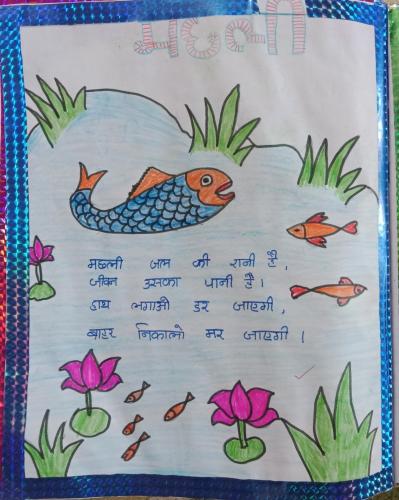 मछली
मछली जल की रानी है,
जीवन उसका पानी है।
हाथ लगाओ डर जाएगी,
बाहर निकालो मर जाएगी।